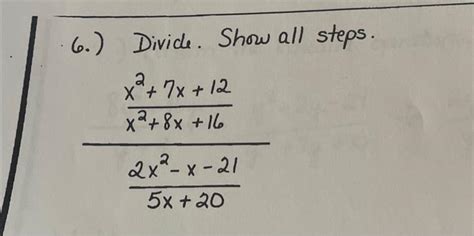 6.) Divide. Show all steps.
x² + 7x + 12
x² + 8x + 16
2x² - x - 21
5x + 20